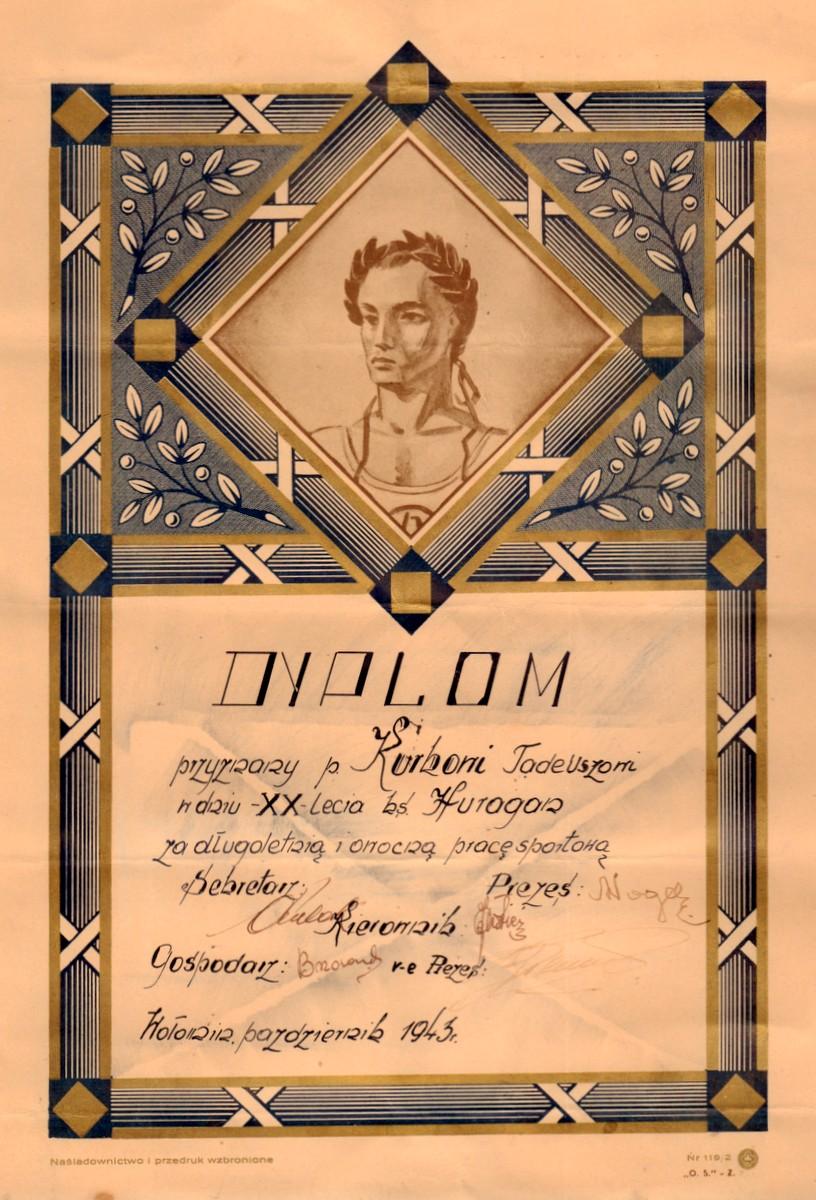 DYPLOM
przyznany p. Kurboni Tadeuszowi
w dniu -XX-Lecia k.s. Huragan
za długoletnią i owocną pracę sportową
Sekretarz: Prezes:
Kierownik
Gospodarz: v-e Prezes:
Wołomin, pazdziernik 1943r.
Naśladownictwo i przedruk wzbronione
Nr 119/2
„O. S." - Z.